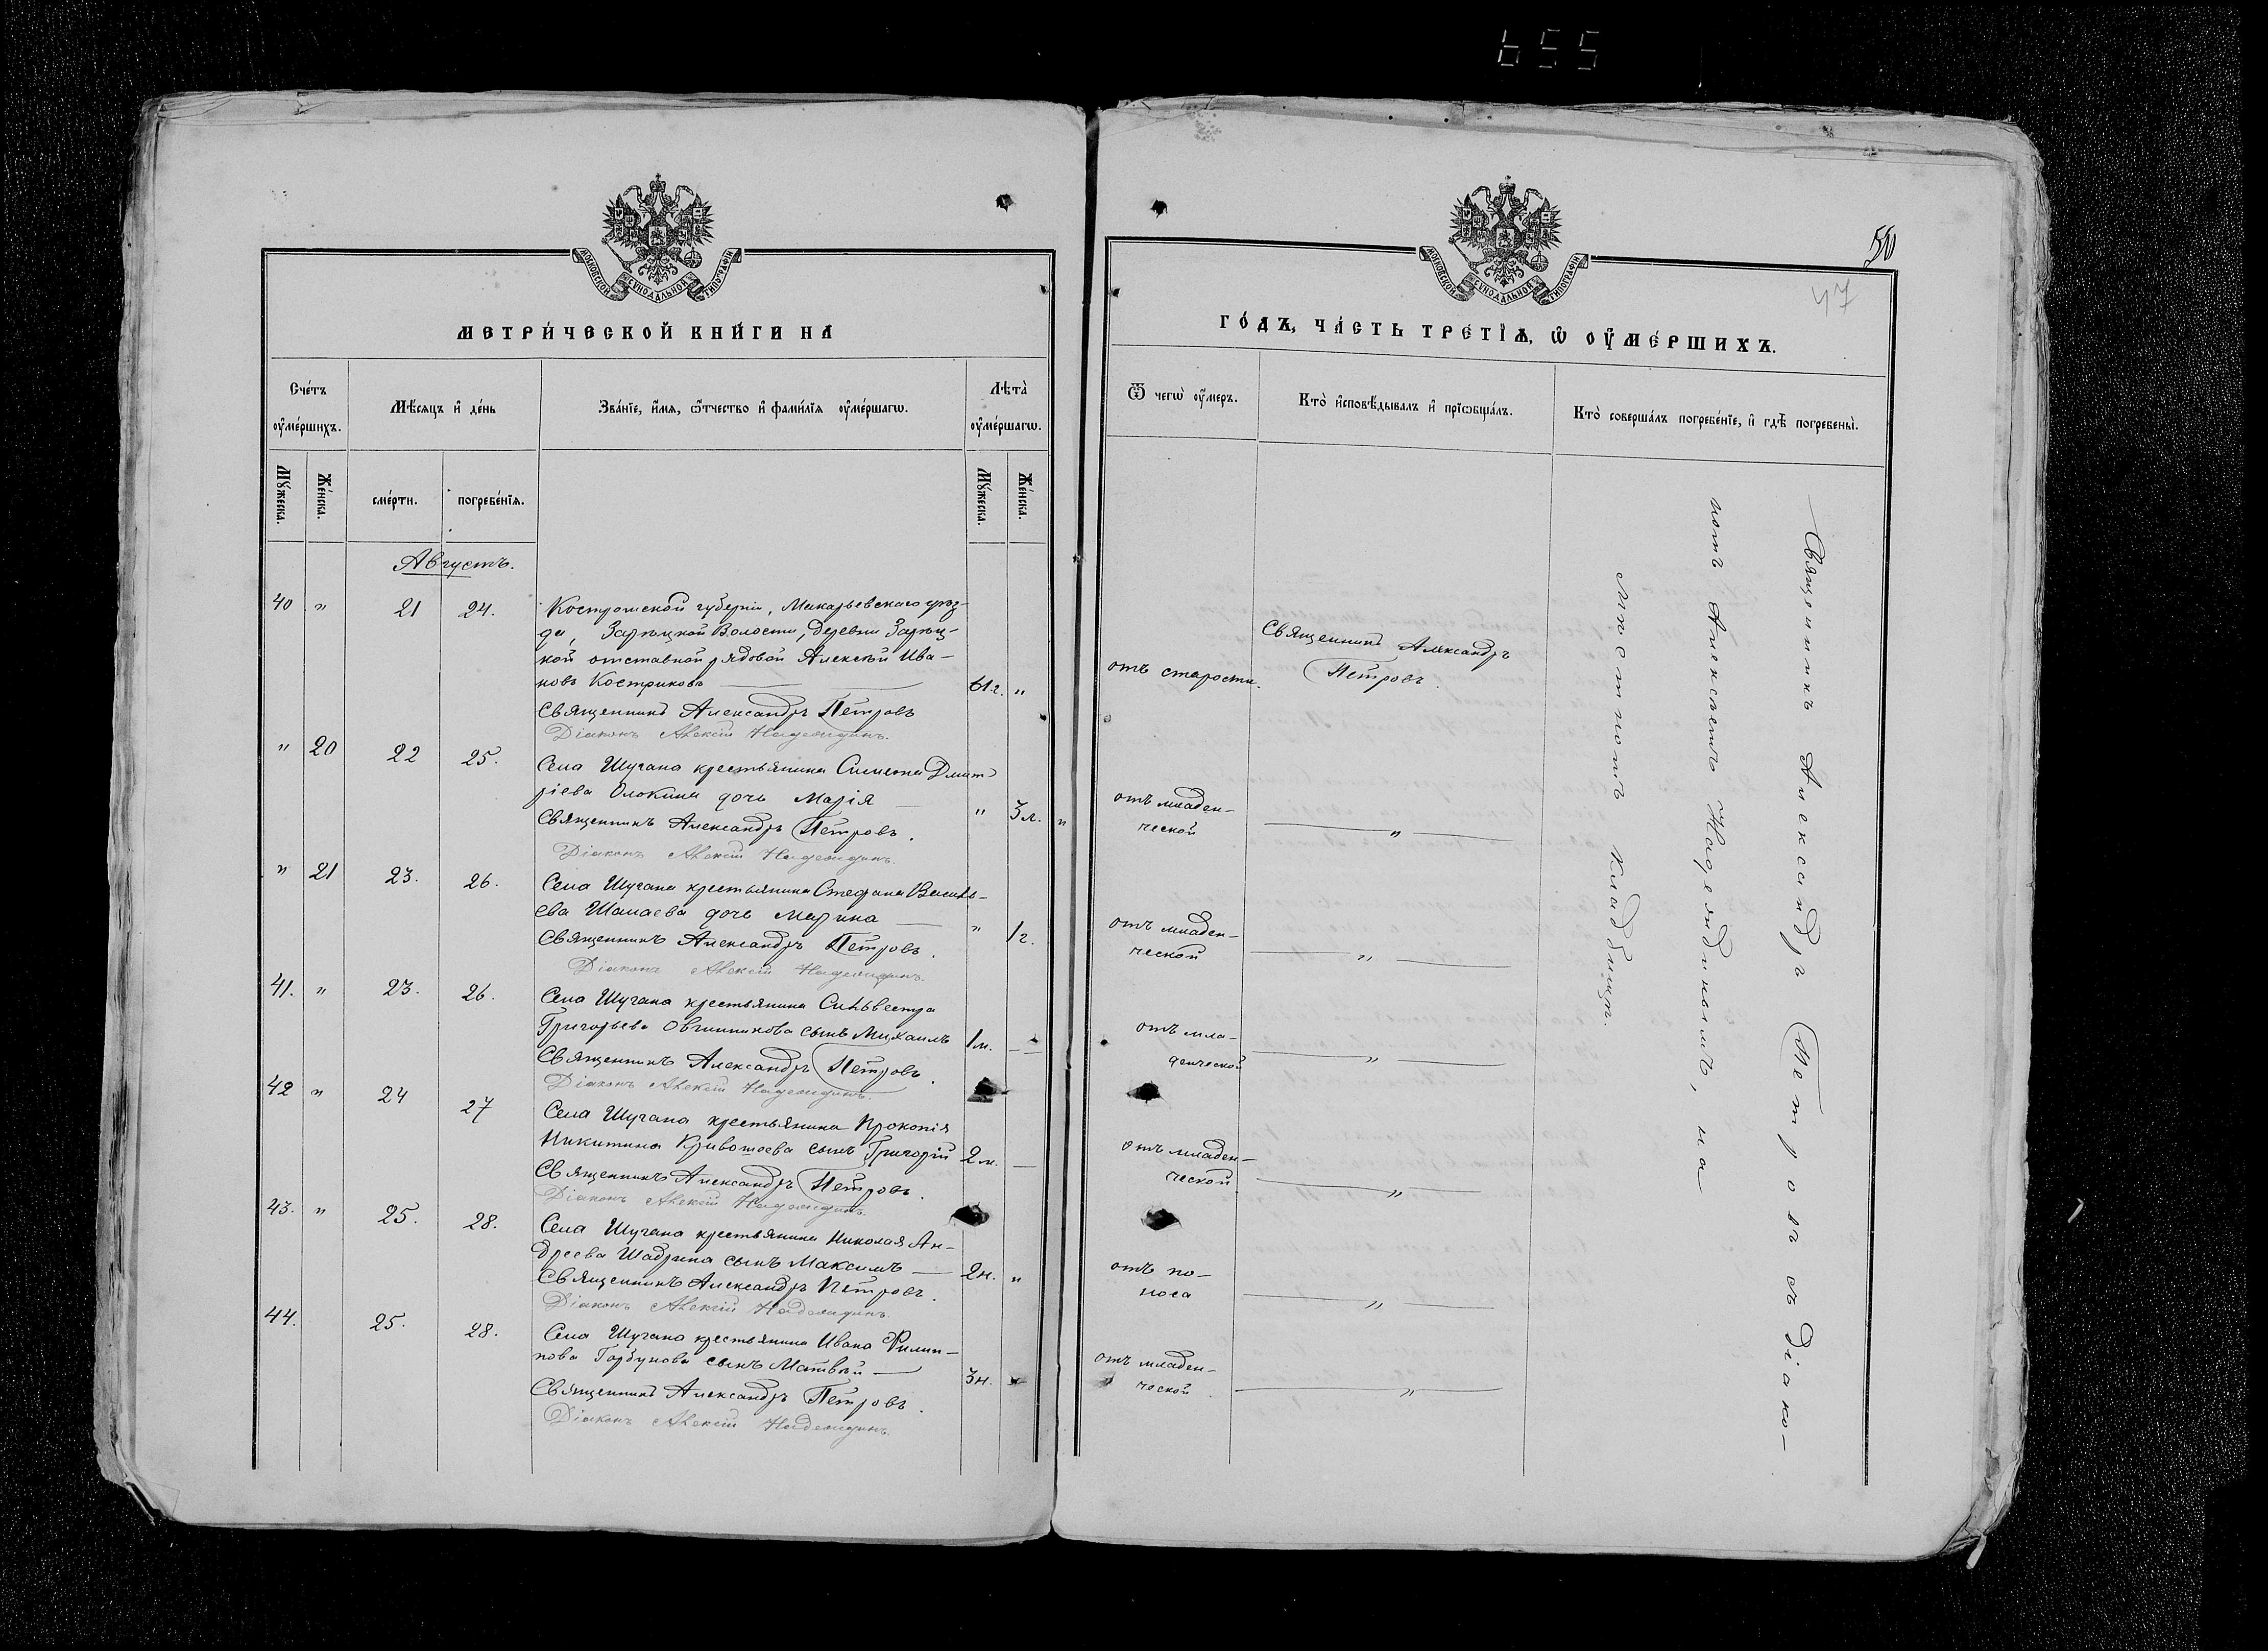 655
МОСКОВСКОЙ СѴНОДАЛЬНОЙ ТИПОГРАФІИ
МЕТРИ́ЧЕСКОЙ КНИ́ГИ НА
Сче́тъ ᲂу҆ме́ршихъ.
Мѣ́сяцъ и҆ де́нь
Зва́нїе, и҆́мя, ѻ҆́тчество и҆ фамı́лїя ᲂу҆ме́ршагѡ.
Лѣ́та ᲂу҆ме́ршагѡ.
Мꙋ́жеска.
Же́нска.
сме́рти.
погребе́нїя.
Мꙋ́жеска.
Же́нска.
Августъ.
40 " 21 24. Костромской губерніи, Макарьевскаго уѣз-
да, Зарѣцкой Волости, деревни Зарѣц-
кой отставной рядовой Алексѣй Ива-
новъ Костриковъ 61 г. "
Священникъ Александръ Петровъ
Діаконъ Алексій Надеждинъ.
" 20 22 25. Села Шугана крестьянина Симеона Дмит-
ріева Олокина дочь Марія " 3 л.
Священникъ Александръ Петровъ.
Діаконъ Алексій Надеждинъ.
" 21 23. 26. Села Шугана крестьянина Стефана Василь-
ева Шалаева дочь Марина " 1 г.
Священникъ Александръ Петровъ.
Діаконъ Алексій Надеждинъ.
41. " 23. 26. Села Шугана крестьянина Сильвестра
Григорьева Овчинникова сынъ Михаилъ 1 м. —
Священникъ Александръ Петровъ.
Діаконъ Алексій Надеждинъ.
42 " 24 27 Села Шугана крестьянина Прокопія
Никитина Кривошеева сынъ Григорій 2 м. —
Священникъ Александръ Петровъ.
Діаконъ Алексій Надеждинъ.
43. " 25. 28. Села Шугана крестьянина Николая Ан-
дреева Шадрина сынъ Максимъ — 2 н. "
Священникъ Александръ Петровъ.
Діаконъ Алексій Надеждинъ.
44. 25. 28. Села Шугана крестьянина Ивана Филип-
пова Горбунова сынъ Матвѣй — 3 н.
Священникъ Александръ Петровъ.
Діаконъ Алексій Надеждинъ.
МОСКОВСКОЙ СѴНОДАЛЬНОЙ ТИПОГРАФІИ
47
ГО́ДЪ, ЧА́СТЬ ТРЕ́ТЇѦ, Ѡ҆ ОУ҆МЕ́РШИХЪ.
Ѿ чегѡ̀ ᲂу҆́меръ.
Кто̀ и҆сповѣ́дывалъ и҆ прїѡбща́лъ.
Кто̀ соверша́лъ погребе́нїе, и҆ гдѣ̀ погребены̀.
отъ старости.
Священникъ Александръ
Петровъ.
отъ младен-
ческой — " —
отъ младен-
ческой — " —
отъ мла-
денческой — " —
отъ младен-
ческой — " —
отъ по-
носа — " —
отъ младен-
ческой — " —
Священникъ Александръ Петровъ съ Діако-
номъ Алексѣемъ Надеждинымъ, на
мѣстномъ кладбищѣ.